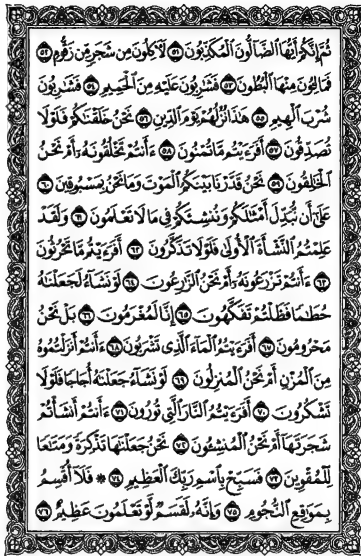 ثُمَّ إِنَّكُمْ أَيُّهَا ٱلضَّآلُّونَ ٱلْمُكَذِّبُونَ ٥١ لَآكِلُونَ مِن شَجَرٍ مِّن زَقُّومٍ ٥٢
فَمَالِـُٔونَ مِنْهَا ٱلْبُطُونَ ٥٣ فَشَٰرِبُونَ عَلَيْهِ مِنَ ٱلْحَمِيمِ ٥٤ فَشَٰرِبُونَ
شُرْبَ ٱلْهِيمِ ٥٥ هَٰذَا نُزُلُهُمْ يَوْمَ ٱلدِّينِ ٥٦ نَحْنُ خَلَقْنَٰكُمْ فَلَوْلَا
تُصَدِّقُونَ ٥٧ أَفَرَءَيْتُم مَّا تُمْنُونَ ٥٨ ءَأَنتُمْ تَخْلُقُونَهُۥٓ أَمْ نَحْنُ
ٱلْخَٰلِقُونَ ٥٩ نَحْنُ قَدَّرْنَا بَيْنَكُمُ ٱلْمَوْتَ وَمَا نَحْنُ بِمَسْبُوقِينَ ٦٠
عَلَىٰٓ أَن نُّبَدِّلَ أَمْثَٰلَكُمْ وَنُنشِئَكُمْ فِى مَا لَا تَعْلَمُونَ ٦١ وَلَقَدْ
عَلِمْتُمُ ٱلنَّشْأَةَ ٱلْأُولَىٰ فَلَوْلَا تَذَكَّرُونَ ٦٢ أَفَرَءَيْتُم مَّا تَحْرُثُونَ
٦٣ ءَأَنتُمْ تَزْرَعُونَهُۥٓ أَمْ نَحْنُ ٱلزَّٰرِعُونَ ٦٤ لَوْ نَشَآءُ لَجَعَلْنَٰهُ
حُطَٰمًا فَظَلْتُمْ تَفَكَّهُونَ ٦٥ إِنَّا لَمُغْرَمُونَ ٦٦ بَلْ نَحْنُ
مَحْرُومُونَ ٦٧ أَفَرَءَيْتُمُ ٱلْمَآءَ ٱلَّذِى تَشْرَبُونَ ٦٨ ءَأَنتُمْ أَنزَلْتُمُوهُ
مِنَ ٱلْمُزْنِ أَمْ نَحْنُ ٱلْمُنزِلُونَ ٦٩ لَوْ نَشَآءُ جَعَلْنَٰهُ أُجَاجًا فَلَوْلَا
تَشْكُرُونَ ٧٠ أَفَرَءَيْتُمُ ٱلنَّارَ ٱلَّتِى تُورُونَ ٧١ ءَأَنتُمْ أَنشَأْتُمْ
شَجَرَتَهَآ أَمْ نَحْنُ ٱلْمُنشِـُٔونَ ٧٢ نَحْنُ جَعَلْنَٰهَا تَذْكِرَةً وَمَتَٰعًا
لِّلْمُقْوِينَ ٧٣ فَسَبِّحْ بِٱسْمِ رَبِّكَ ٱلْعَظِيمِ ٧٤ ۞ فَلَآ أُقْسِمُ
بِمَوَٰقِعِ ٱلنُّجُومِ ٧٥ وَإِنَّهُۥ لَقَسَمٌ لَّوْ تَعْلَمُونَ عَظِيمٌ ٧٦